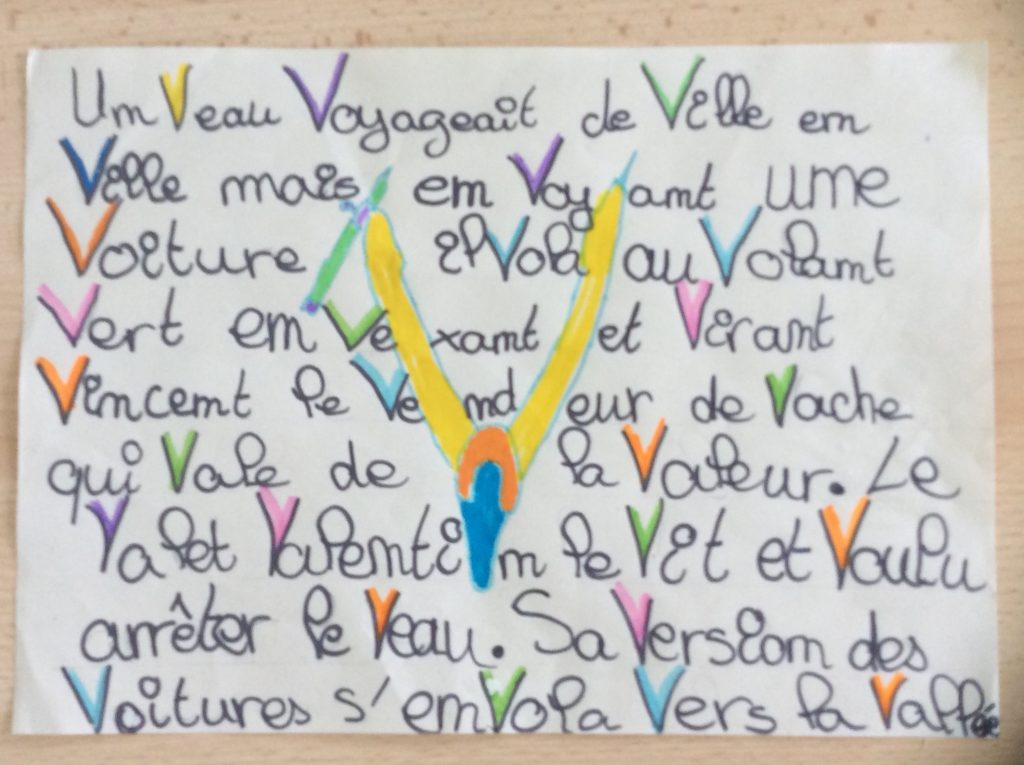 Un Veau Voyageait de Ville en
Ville mais en Voyant une
Voiture il Vola au Volant
Vert en Vexant et Virant
Vincent le Vendeur de Vache
qui Vale de la Valeur. Le
Valet Valentin le Vit et Voulu
arrêter le Veau. Sa Version des
Voitures s'en Vola Vers la Vallée